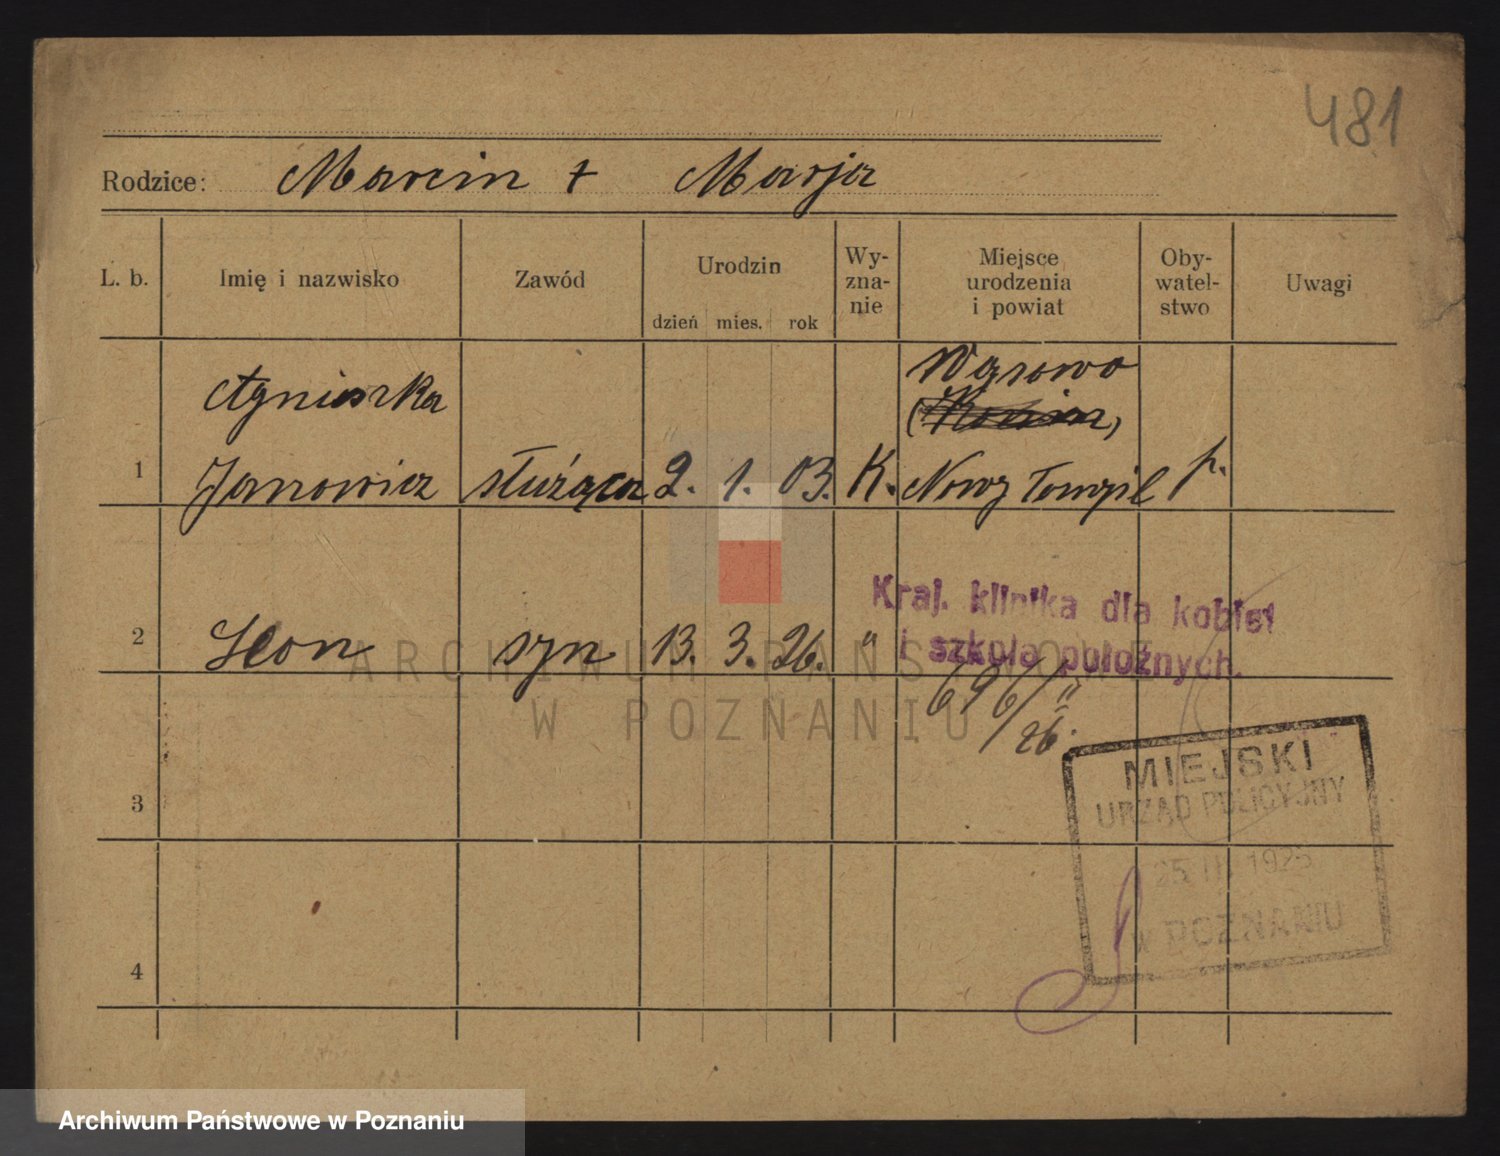 481
Rodzice: Marcin + Marja
L. b. Imię i nazwisko Zawód Urodzin dzień mies. rok Wy-zna-nie Miejsce urodzenia i powiat Oby-watel-stwo Uwagi
Wąsowo
Agnieszka
1 Janowicz służąca 2. 1. 03. K. Nowy Tomyśl p.
Kraj. klinika dla kobiet
2 Leon syn 13. 3. 26. " i szkoła położnych.
ARCHIWUM PAŃSTWOWE
696/II
W POZNANIU
26.
MIEJSKI
URZĄD POLICYJNY
3
25 III. 1926
w POZNANIU
4
Archiwum Państwowe w Poznaniu